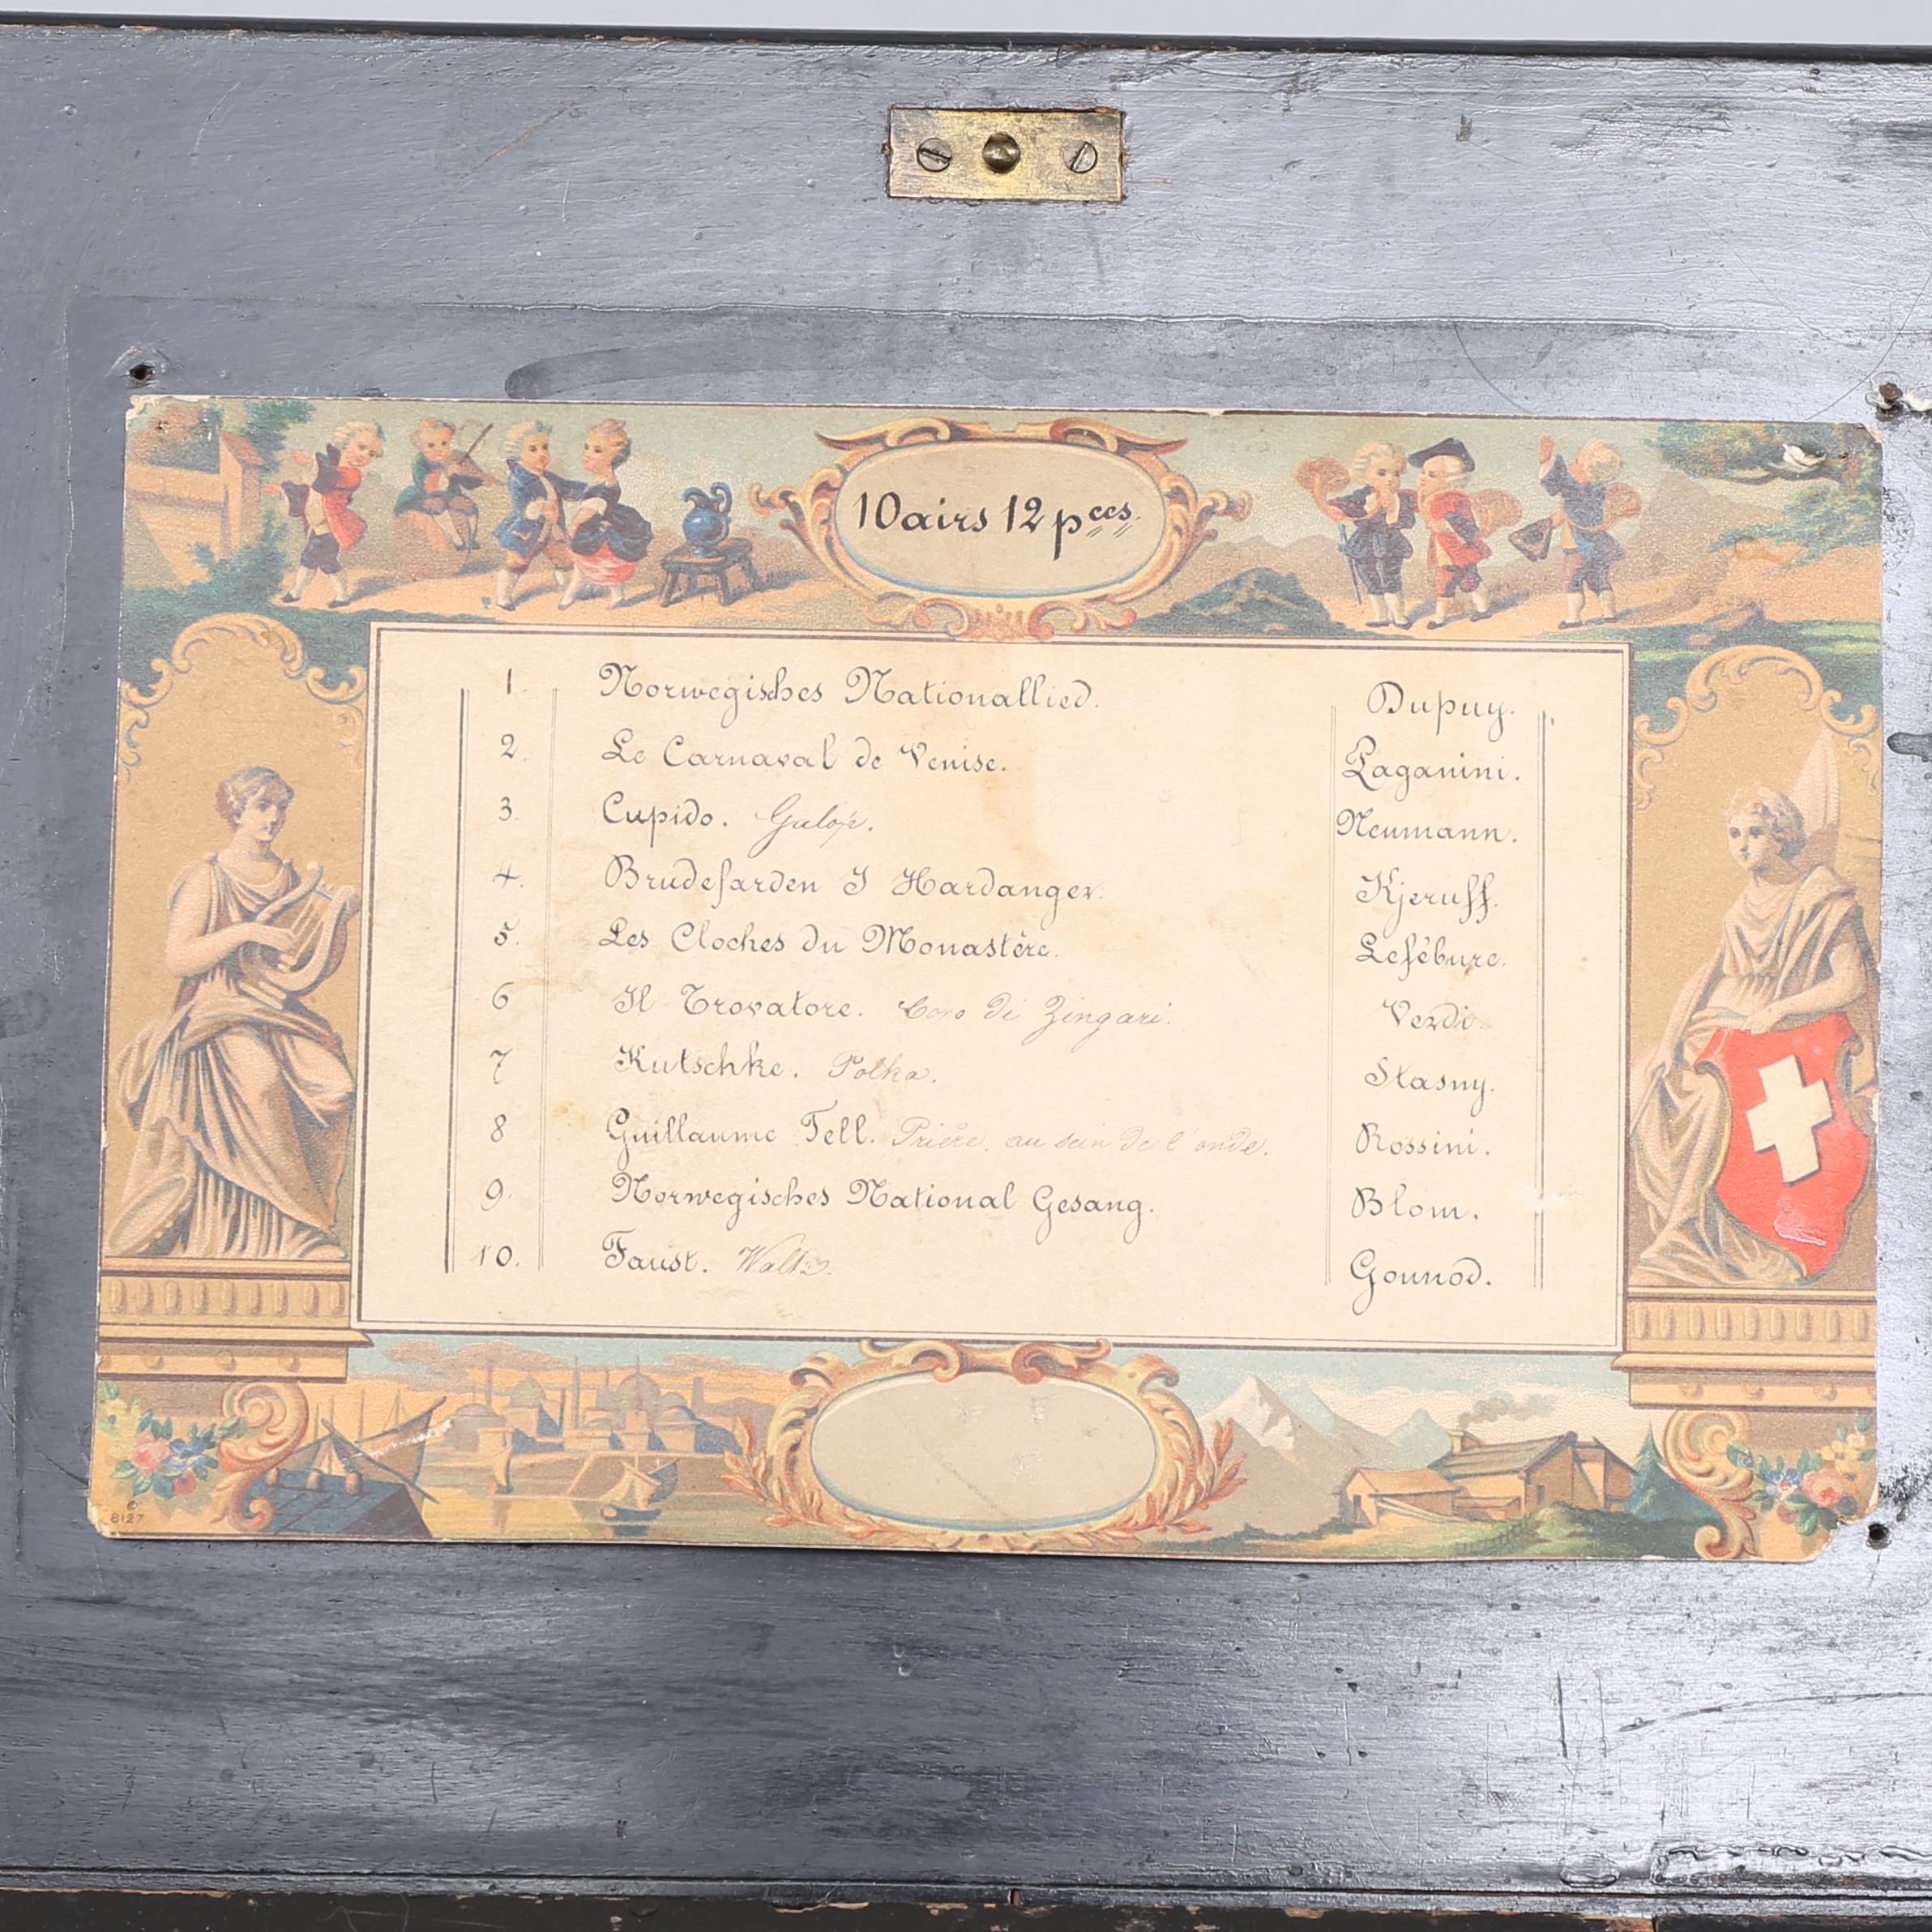 10 airs 12 pces.
1. Norwegisches Nationallied. Dupuy.
2. Le Carnaval de Venise. Paganini.
3. Cupido. Galop. Neumann.
4. Brudefarden I Hardanger. Kjeruff.
5. Les Cloches du Monastère. Lefébure.
6 Il Trovatore. Coro di Zingari. Verdi.
7 Kutschke. Polka. Stasny.
8 Guillaume Tell. Prière. au sein de l'onde. Rossini.
9. Norwegisches National Gesang. Blom.
10. Faust. Waltz. Gounod.
8127